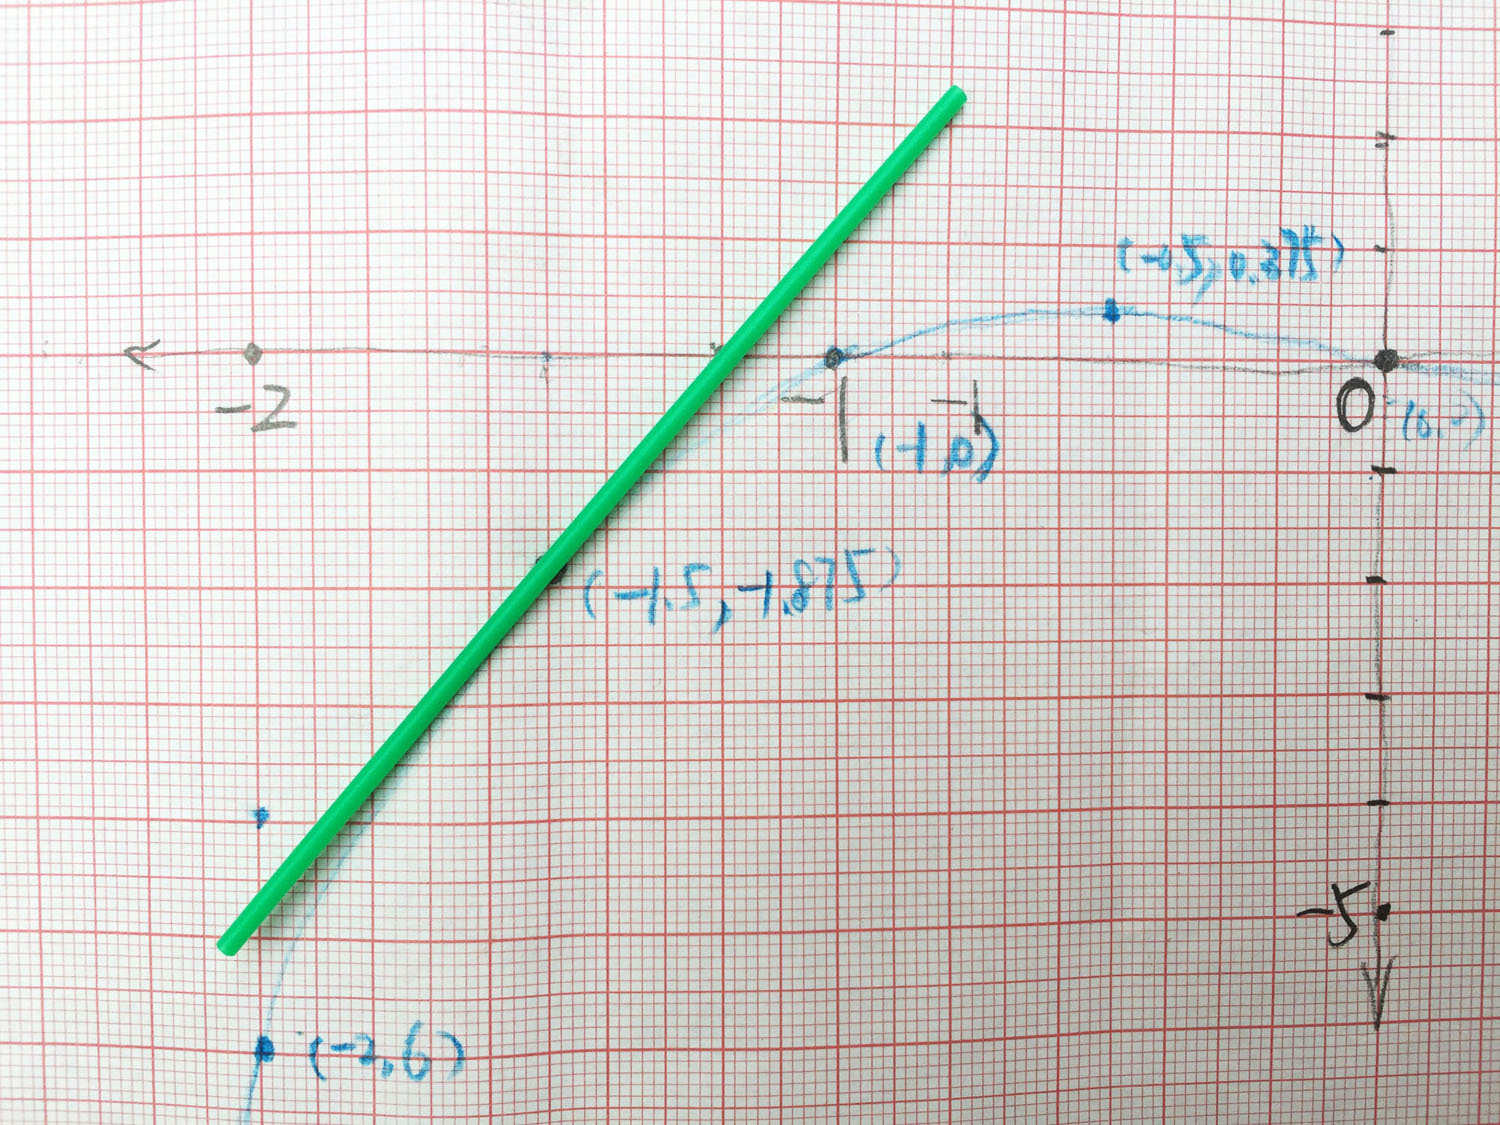 (-0.5, 0.375)
-2
-1
-1
0
(0,0)
(-1,0)
(-1.5, -1.875)
-5
(-2,6)